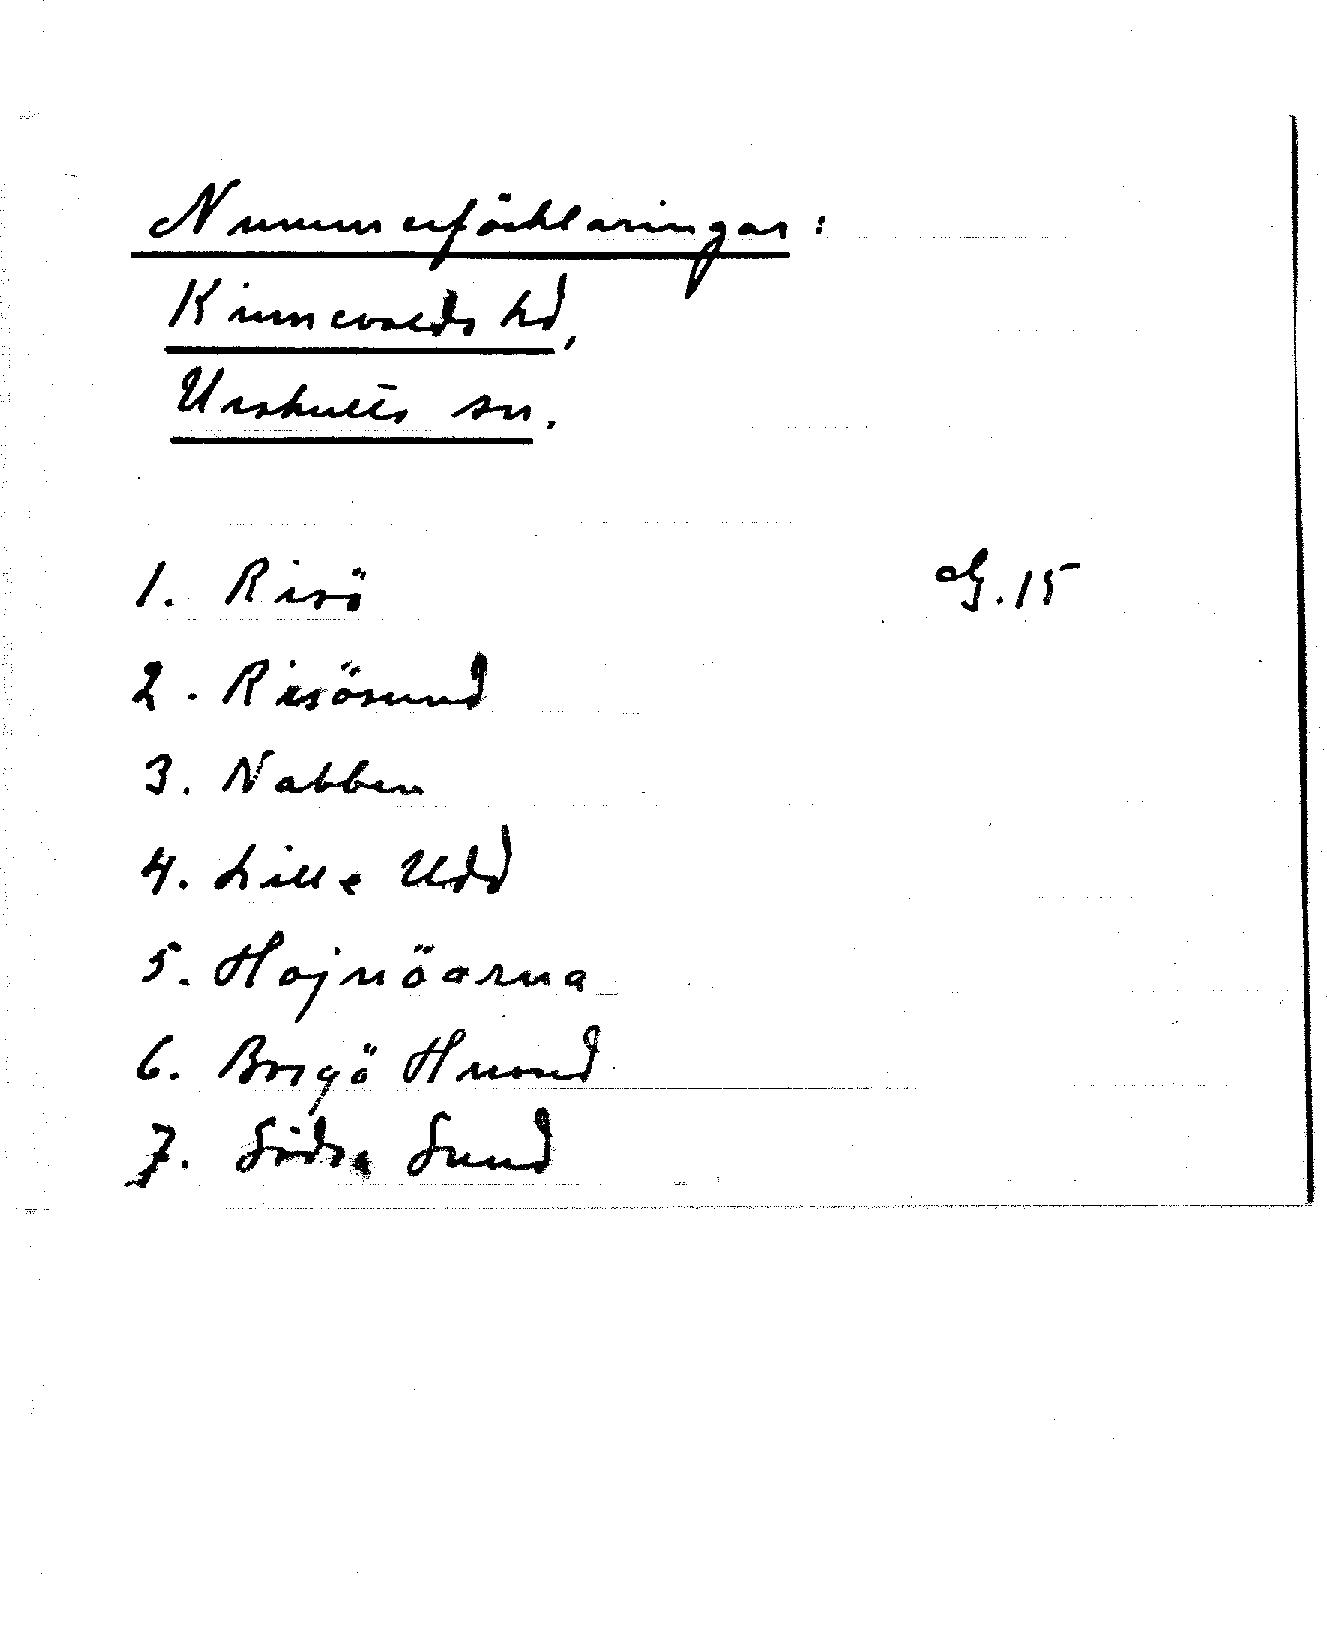 Nummerförklaringar:
Kinnevalds hd,
Urshults sn.
1. Risö G. 15
2. Risösund
3. Nabben
4. Lille Udd
5. Hojnöarna
6. Brygö Hunnd
7. Södra Sund